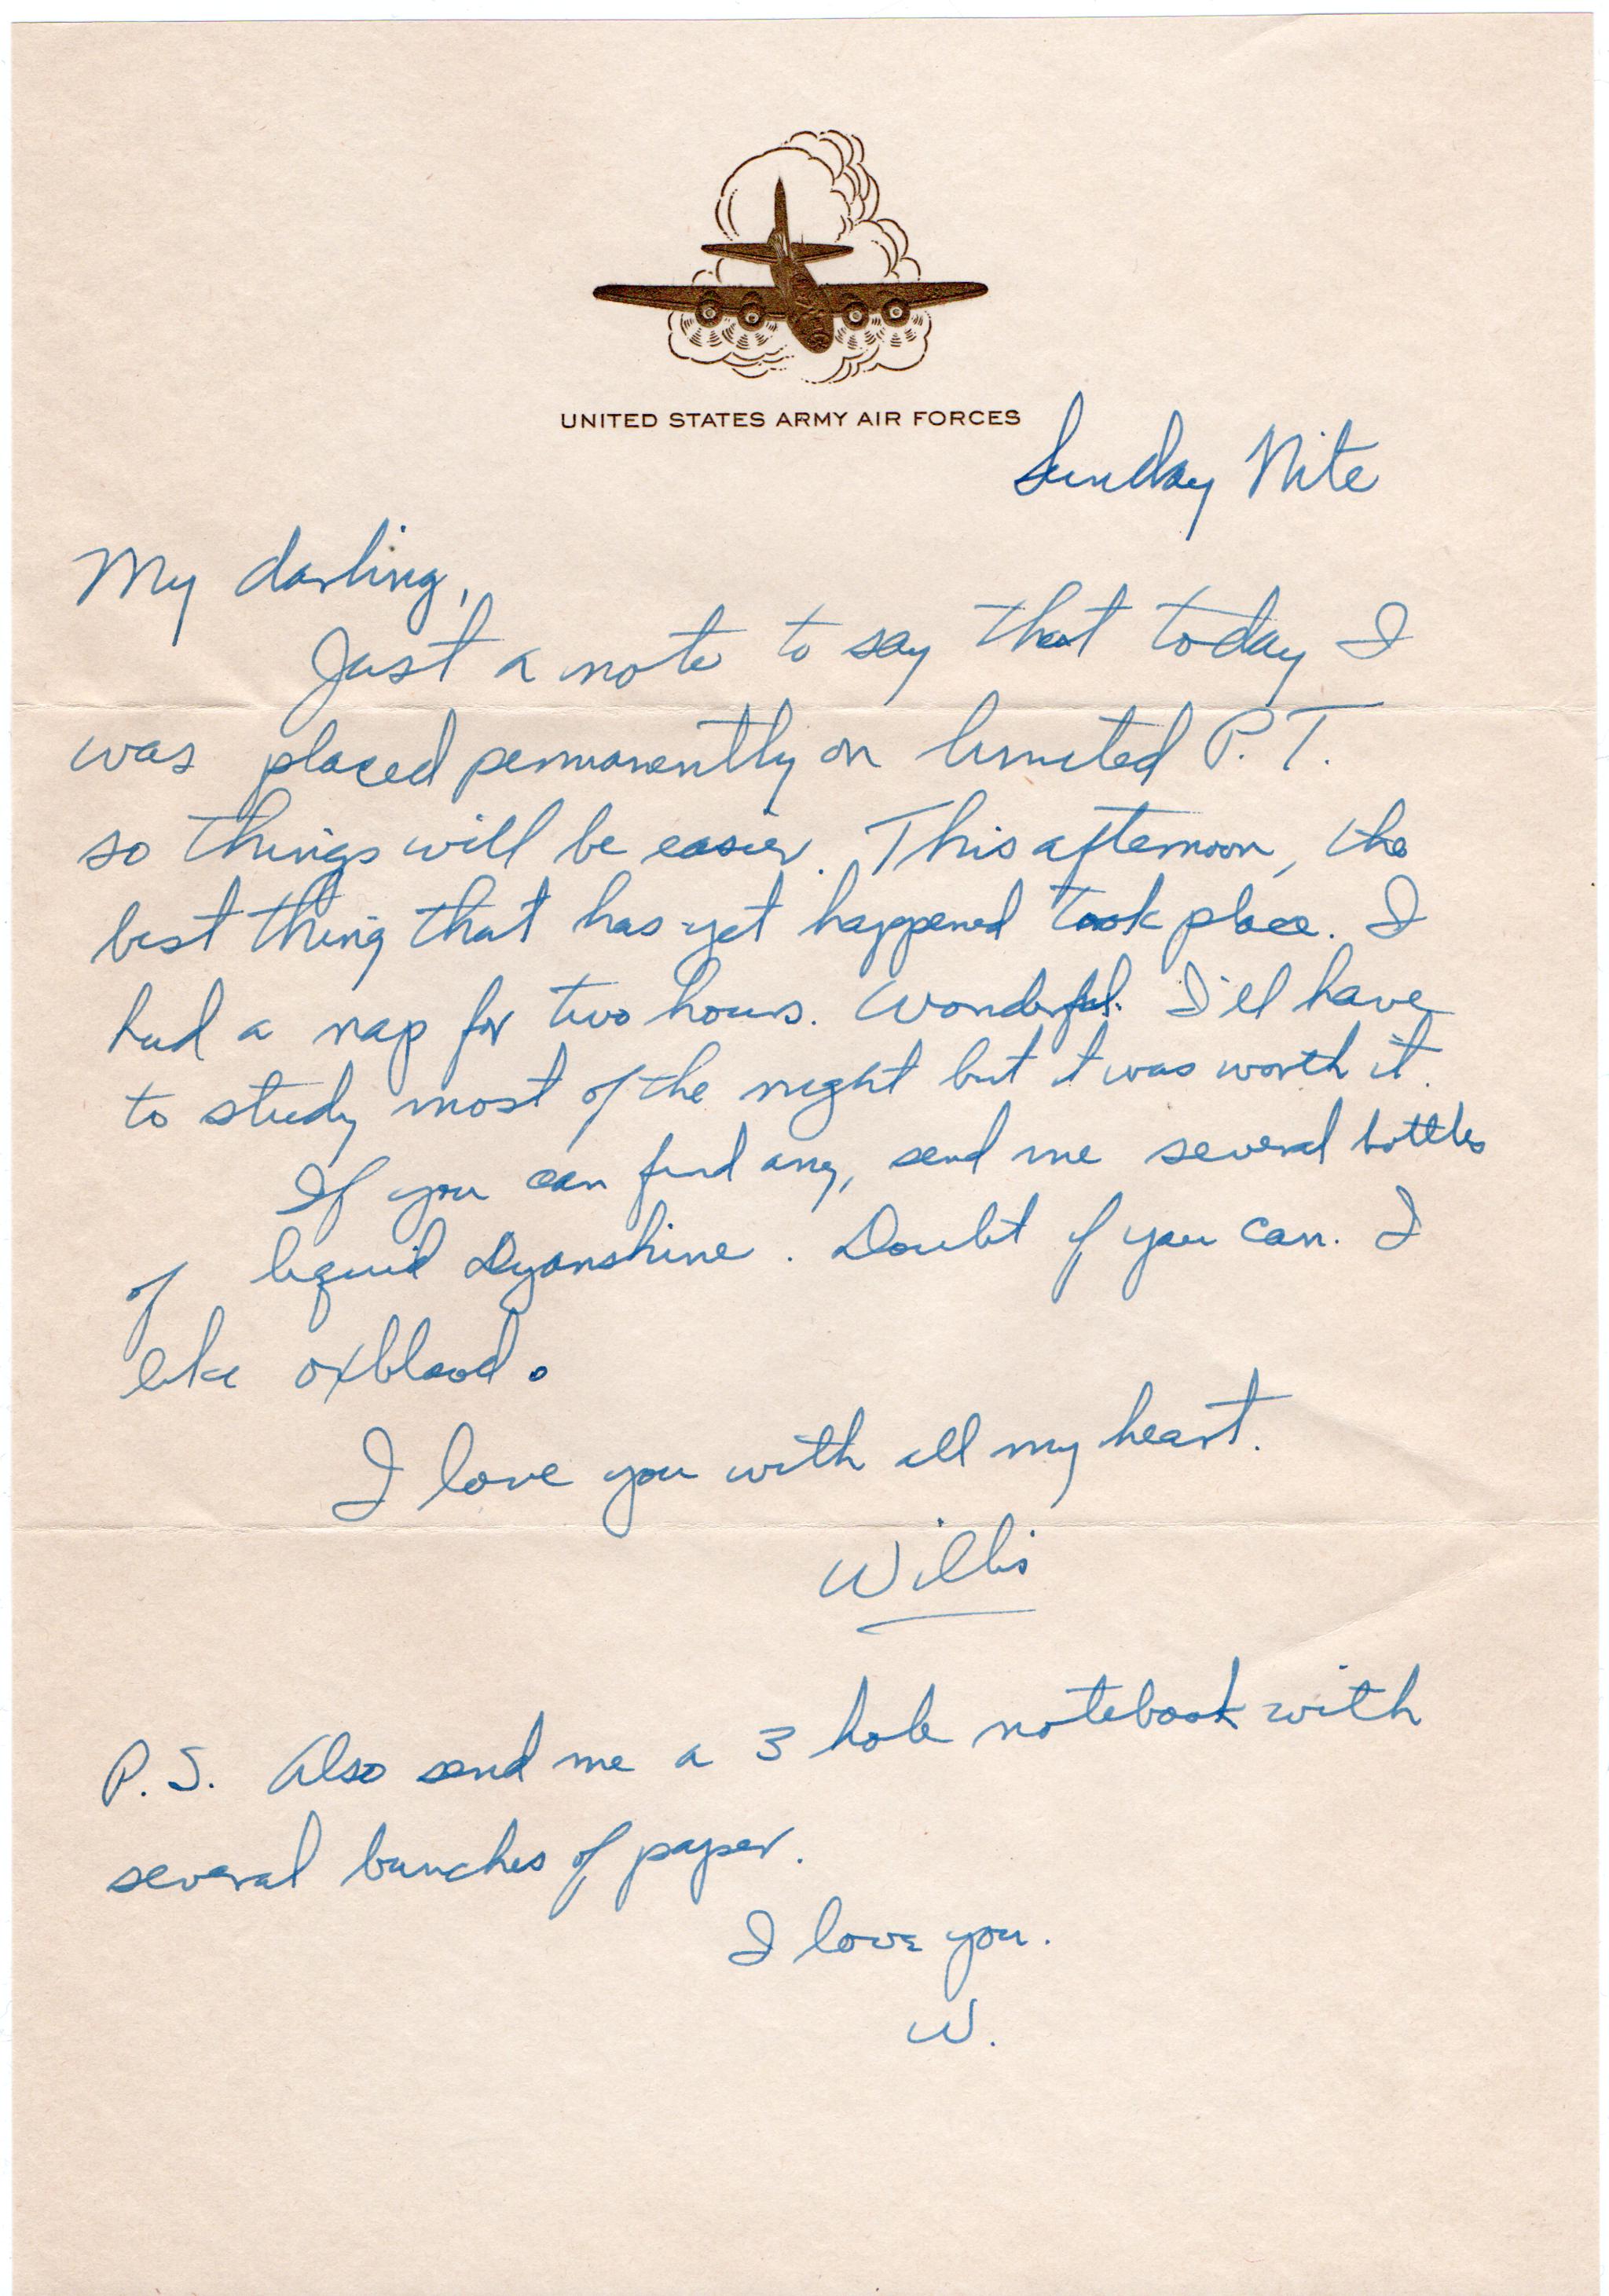 UNITED STATES ARMY AIR FORCES
Sunday Nite
My darling,
Just a note to say that today I
was placed permanently on limited P. T.
so things will be easier. This afternoon, the
best thing that has yet happened took place. I
had a nap for two hours. Wonderful. I'll have
to study most of the night but it was worth it.
If you can find any, send me several bottles
of liquid Dyanshine. Doubt if you can. I
like oxblood.
I love you with all my heart.
Willis
P.S. Also send me a 3 hole notebook with
several bunches of paper.
I love you.
W.